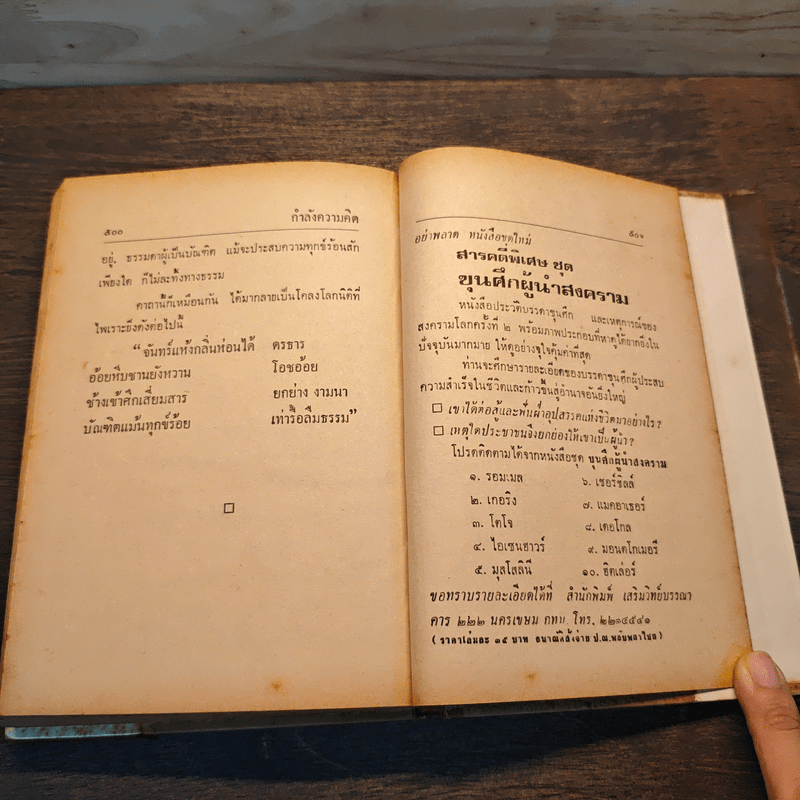 ๕๐๐ กำลังความคิด
อยู่. ธรรมดาผู้เป็นบัณฑิต แม้จะประสบความทุกข์ร้อนสัก
เพียงใด ก็ไม่ละทิ้งทางธรรม
คาถานี้ก็เหมือนกัน ได้มากลายเป็นโคลงโลกนิติที่
ไพเราะยิ่งดังต่อไปนี้
“จันทร์แห้งกลิ่นห่อนได้ ดรธาร
อ้อยหีบชานยังหวาน โอชอ้อย
ช้างเข้าศึกเสี่ยมสาร ยกย่าง งามนา
บัณฑิตแม้นทุกข์ร้อย เท่ารื้อลืมธรรม”
๕๐๑
อย่าพลาด หนังสือชุดใหม่
สารคดีพิเศษ ชุด
ขุนศึกผู้นำสงคราม
หนังสือประวัติบรรดาขุนศึก และเหตุการณ์ของ
สงครามโลกครั้งที่ ๒ พร้อมภาพประกอบที่หาดูได้ยากยิ่งใน
ปัจจุบันมากมาย ให้ดูอย่างจุใจคุ้มค่าที่สุด
ท่านจะศึกษารายละเอียดของบรรดาขุนศึกผู้ประสบ
ความสำเร็จในชีวิตและก้าวขึ้นสู่อำนาจอันยิ่งใหญ่
□ เขาได้ต่อสู้และฟันฝ่าอุปสรรคแห่งชีวิตมาอย่างไร?
□ เหตุใดประชาชนจึงยกย่องให้เขาเป็นผู้นำ?
โปรดติดตามได้จากหนังสือชุด ขุนศึกผู้นำสงคราม
๑. รอมเมล ๖. เชอร์ชิลล์
๒. เกอริง ๗. แมคอาเธอร์
๓. โตโจ ๘. เดอโกล
๔. ไอเซนฮาวร์ ๙. มอนตโกเมอรี่
๕. มุสโสลินี ๑๐. ฮิตเล่อร์
ขอทราบรายละเอียดได้ที่ สำนักพิมพ์ เสริมวิทย์บรรณา
คาร ๒๒๒ นครเขษม กทม. โทร. ๒๒๑๔๕๔๑
(ราคาเล่มละ ๓๕ บาท ธนาณัติสั่งจ่าย ป.ณ.พลับพลาไชย)